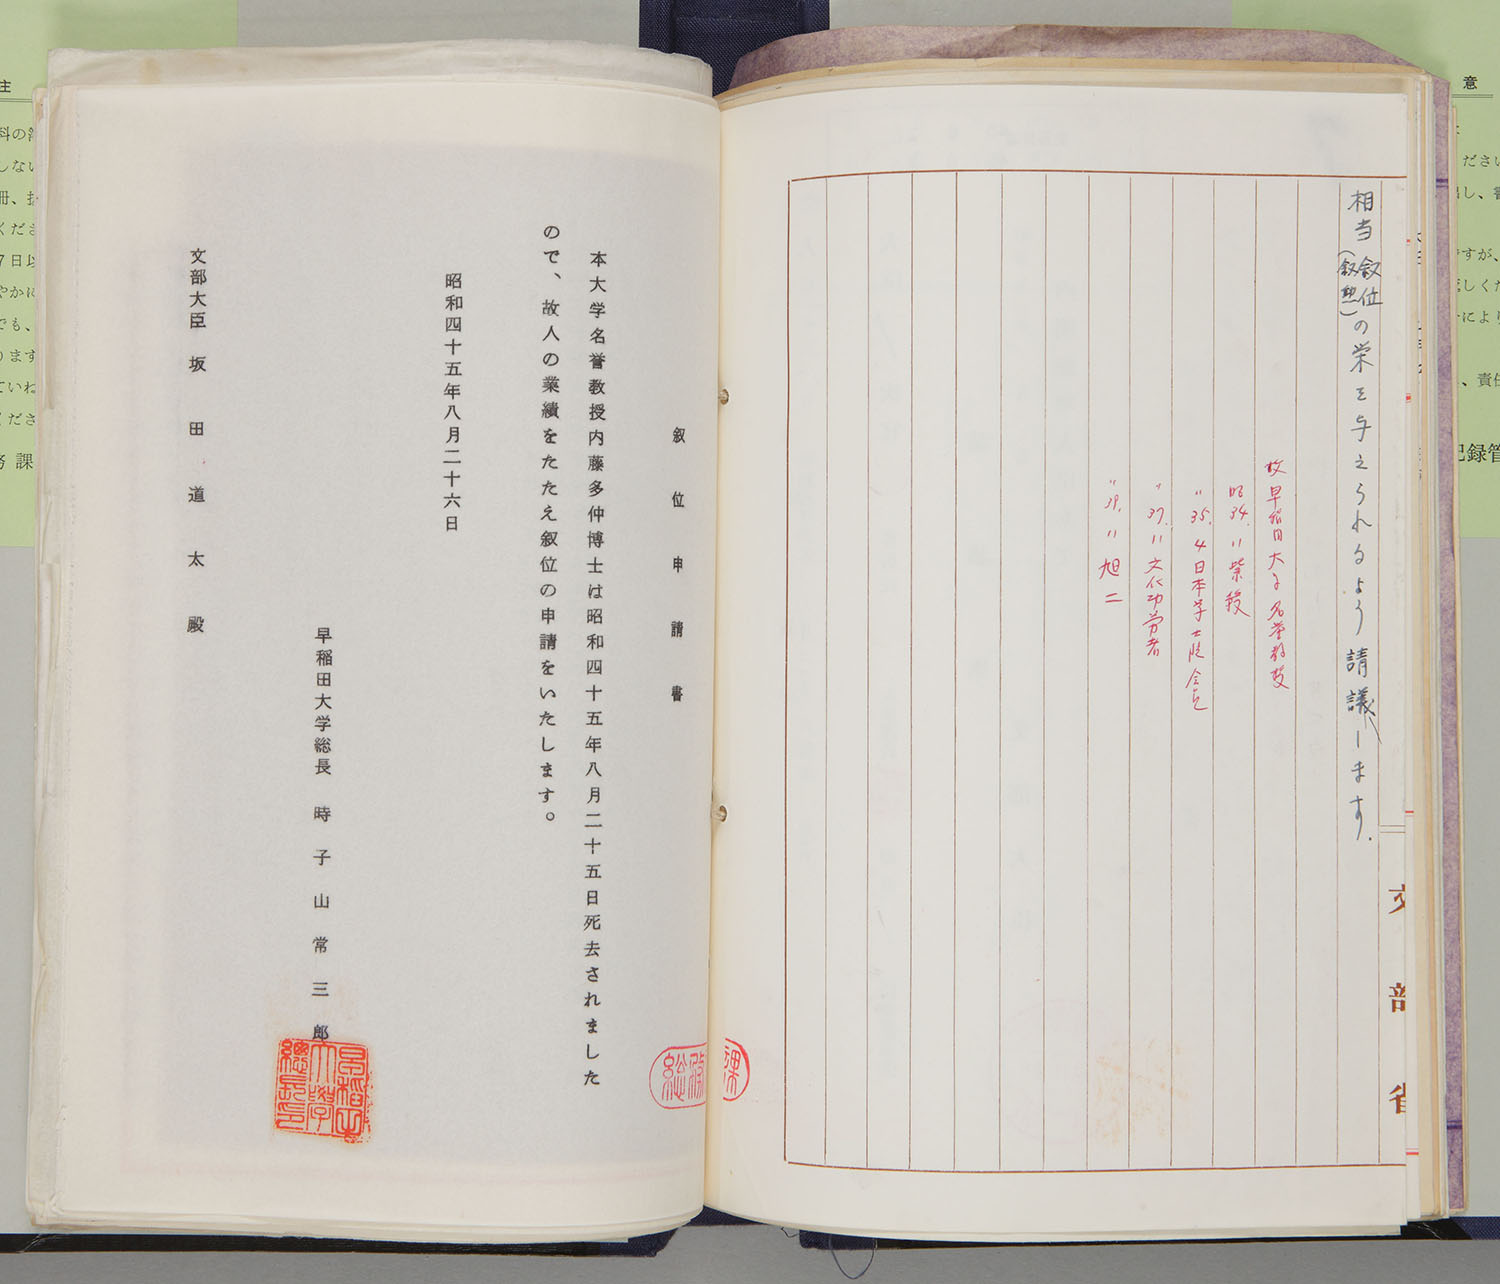 相当(叙位叙勲)の栄を与えられるよう請議します.
故早稲田大学名誉教授
昭34.11紫綬
〃35.4日本学士院会員
〃37.11文化功労者
〃39.11旭二
文部省
叙位申請書
本大学名誉教授内藤多仲博士は昭和四十五年八月二十五日死去されました
ので、故人の業績をたたえ叙位の申請をいたします。
昭和四十五年八月二十六日
早稲田大学総長 時子山常三郎
早稲田大学総長印
文部大臣 坂田道太殿
総務課
注
意